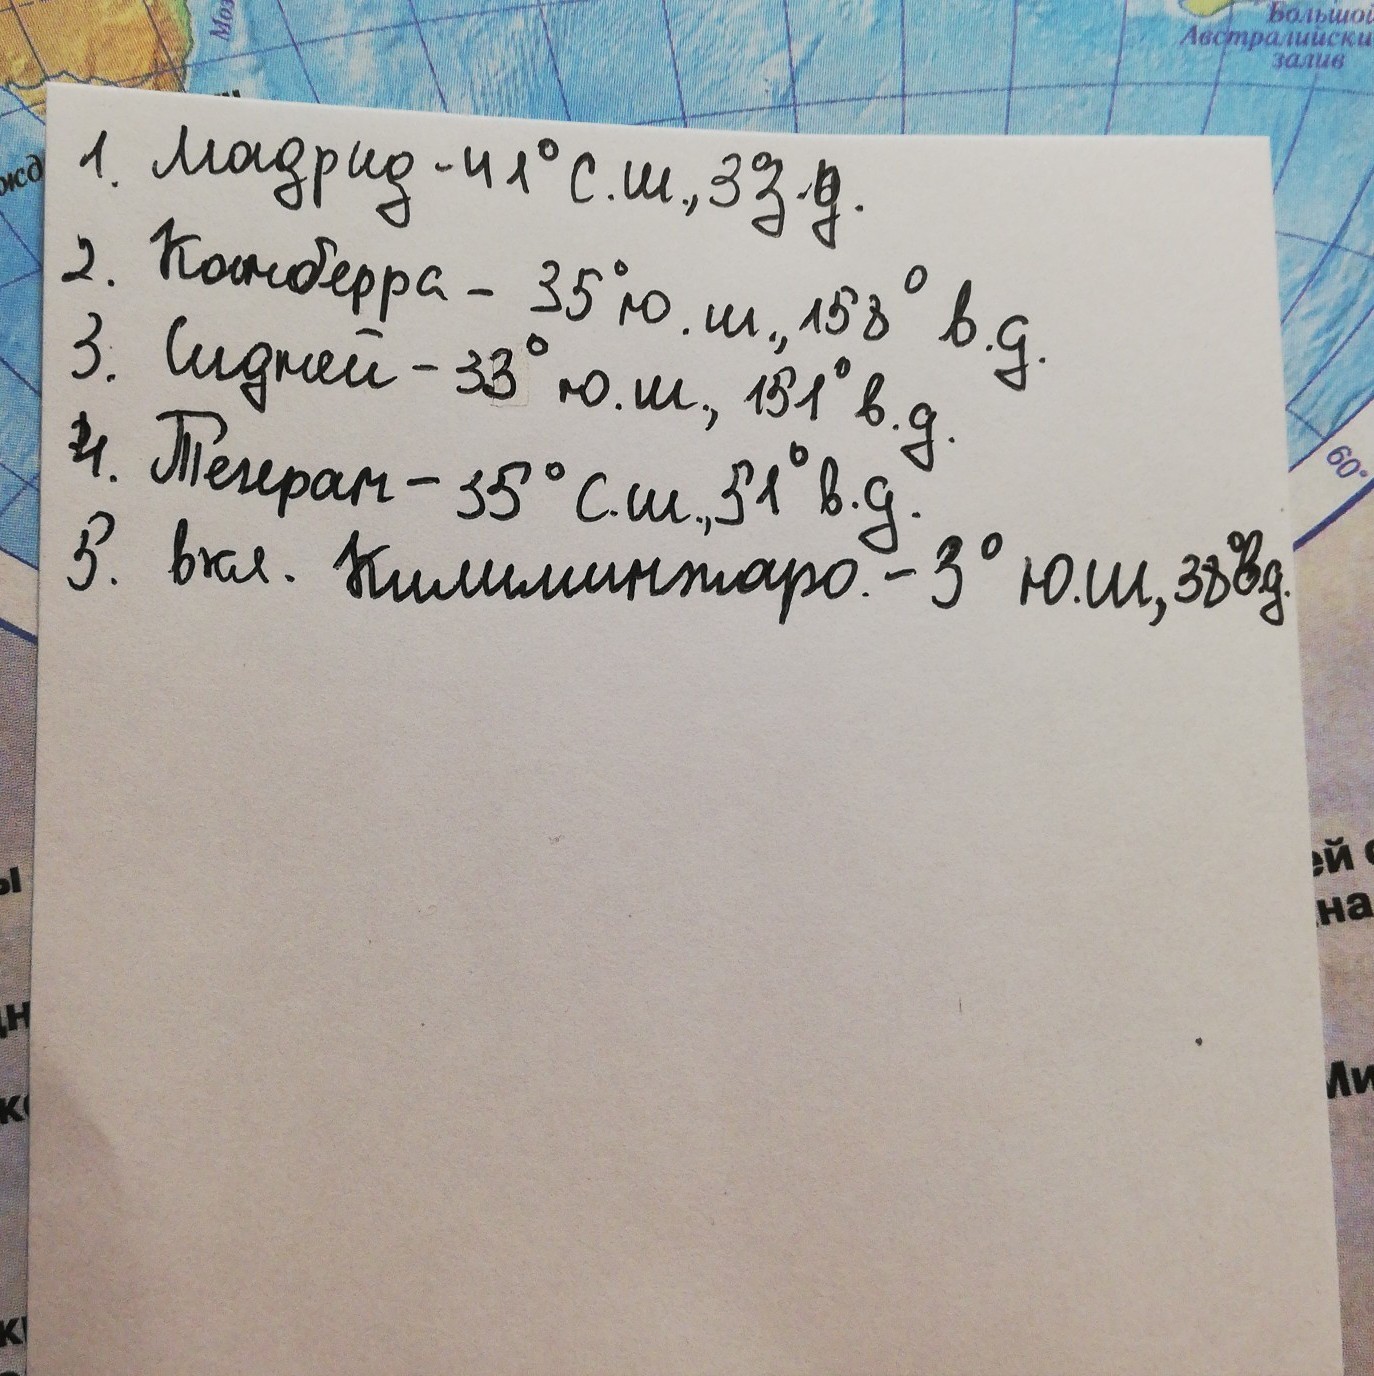 Моз
Большой
Австралийски
залив
жд
1. Мадрид - 41° с.ш., 3° з.д.
2. Канберра - 35° ю.ш., 158° в.д.
3. Сидней - 33° ю.ш., 151° в.д.
4. Тегеран - 35° с.ш., 51° в.д.
60°
5. вкл. Килиминжаро. - 3° ю.ш, 38° в.д.
ы
ей с
на
дн
Ми
к